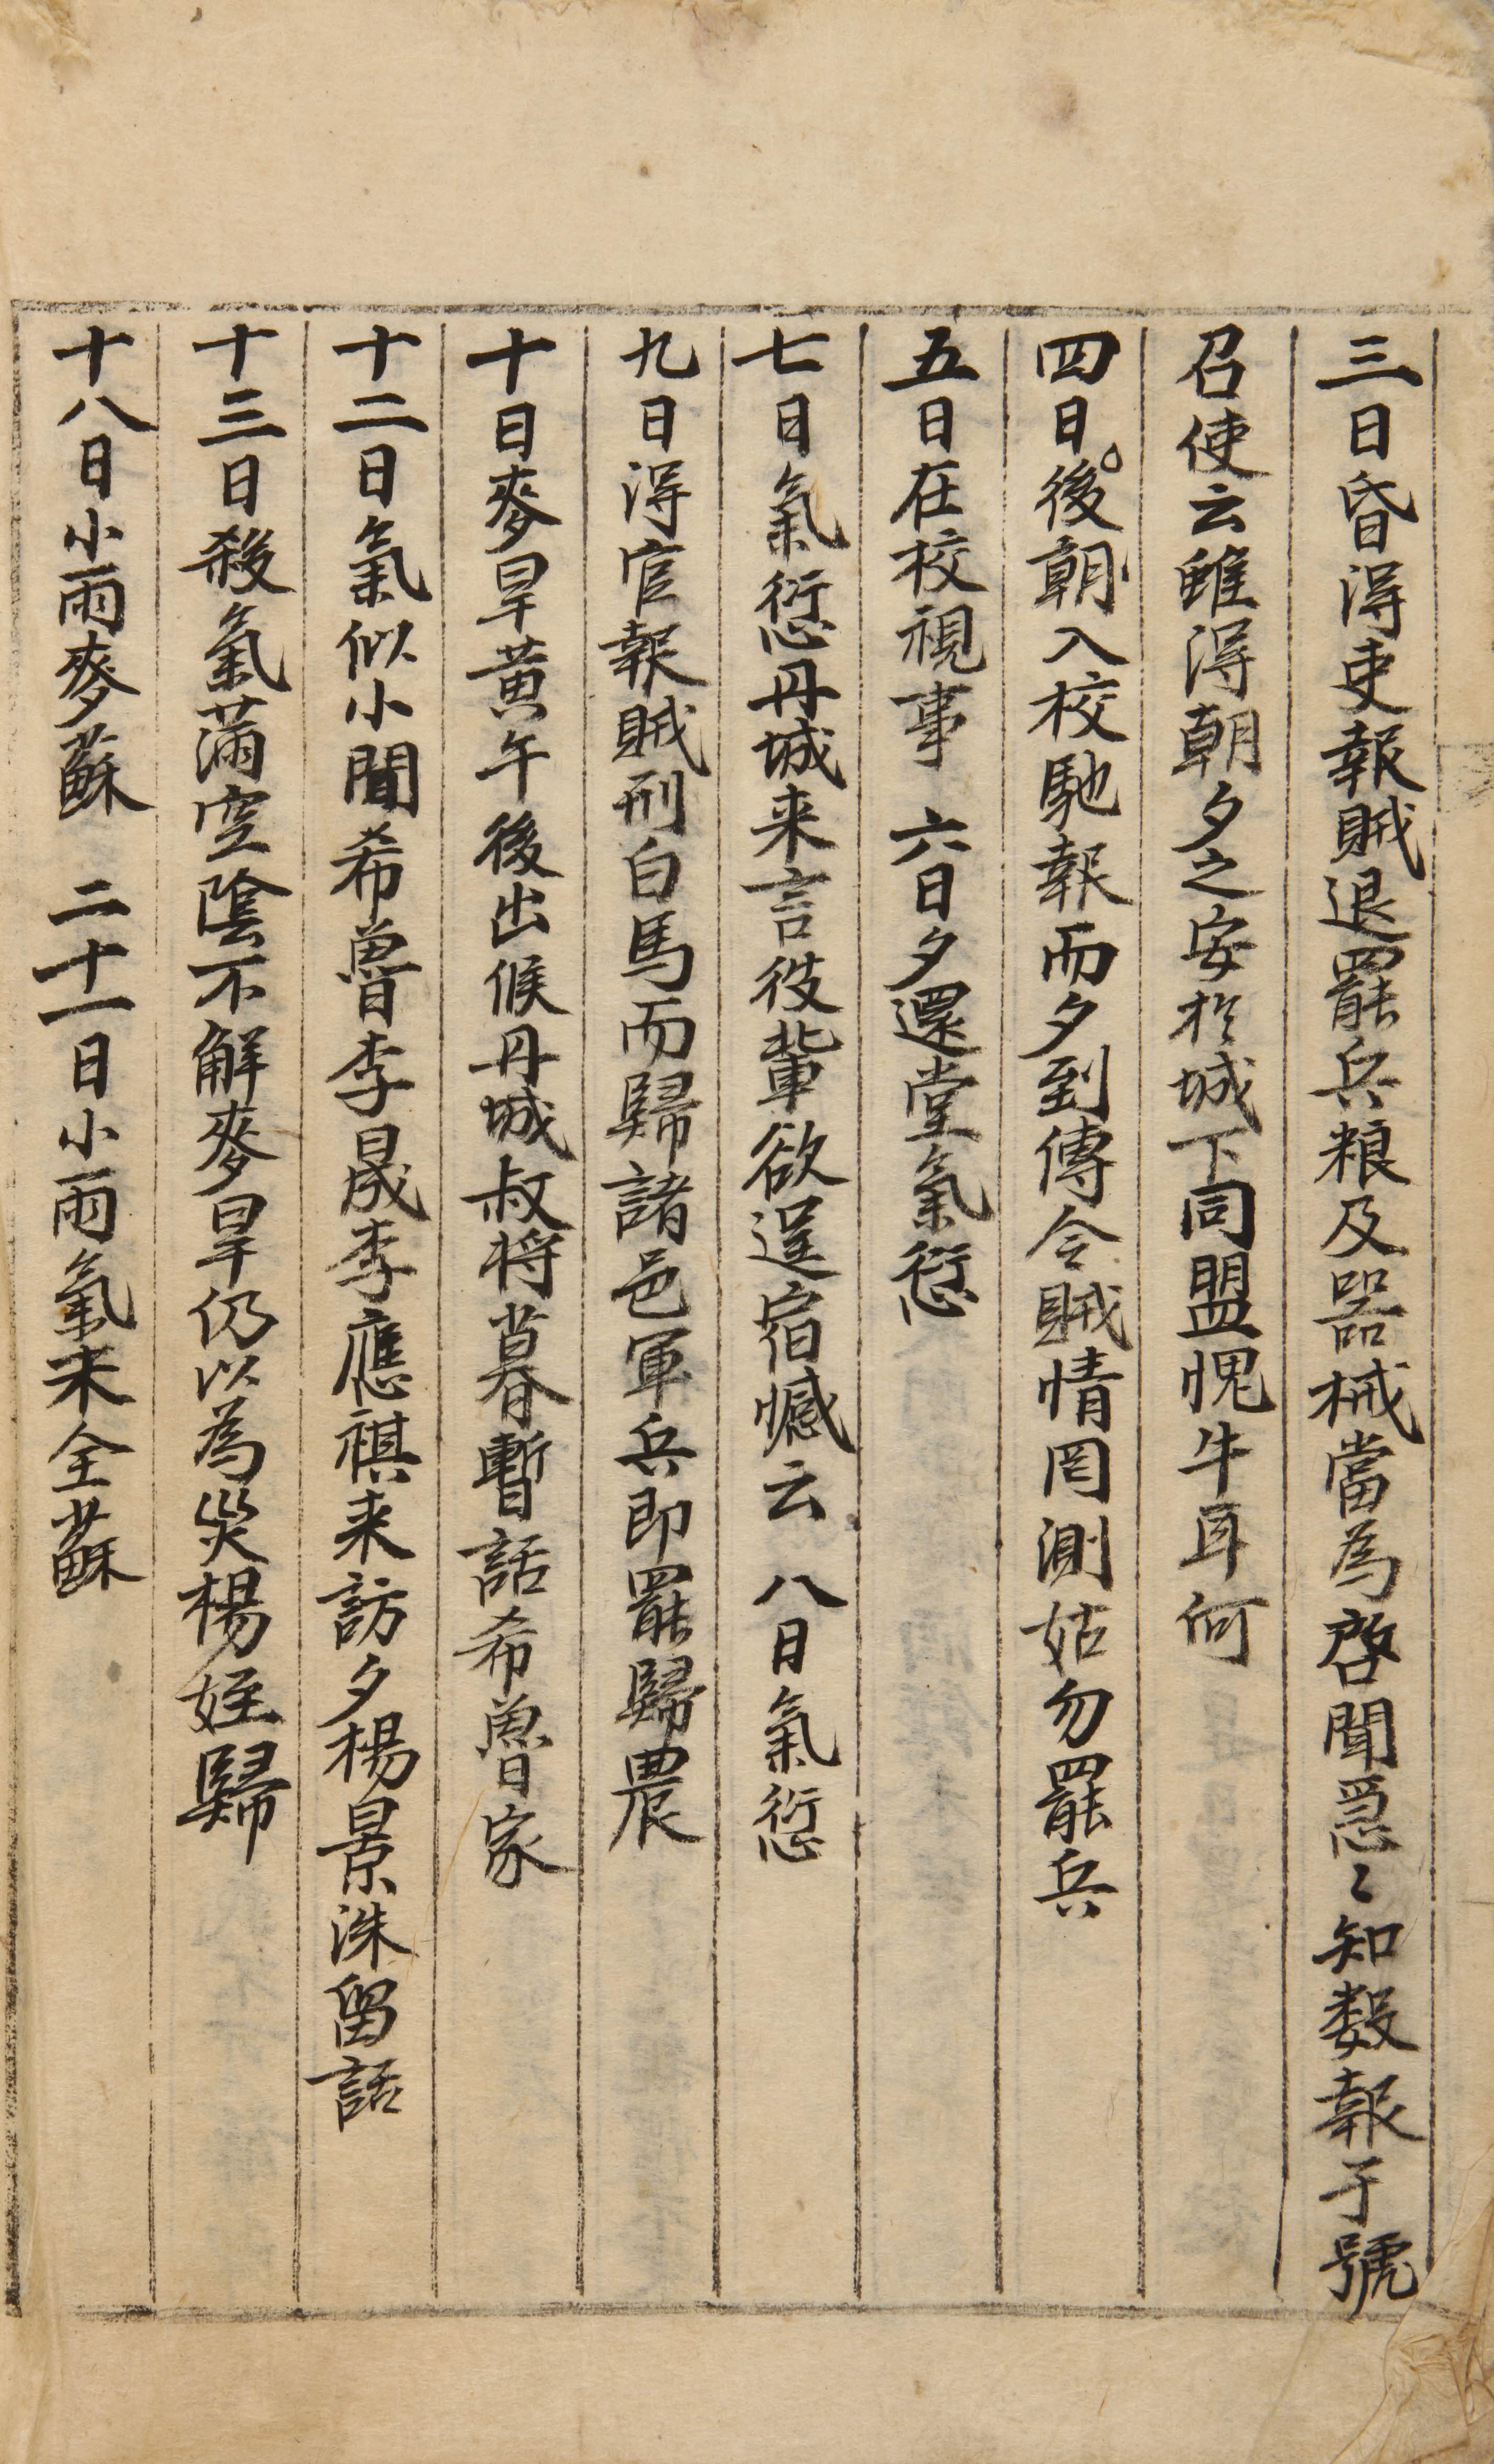 三日昏得吏報賊退罷兵粮及器械當為啓聞急〻知數報于號
召使云雖得朝夕之安於城下同盟愧牛耳何
四日後朝入校馳報而夕到傳令賊情罔測姑勿罷兵
五日在校視事 六日夕還堂氣愆
七日氣愆丹城来言彼軰欲逞宿憾云 八日氣愆
九日得官報賊刑白馬而歸諸邑軍兵即罷歸農
十日麥旱黃午後出候丹城叔将暮暫話希魯家
十二日氣似小聞希魯李晟李應祺来訪夕楊景洙留話
十三日殺氣滿空陰不解麥旱仍以為災楊姪歸
十八日小雨麥蘇 二十一日小雨氣未全蘇